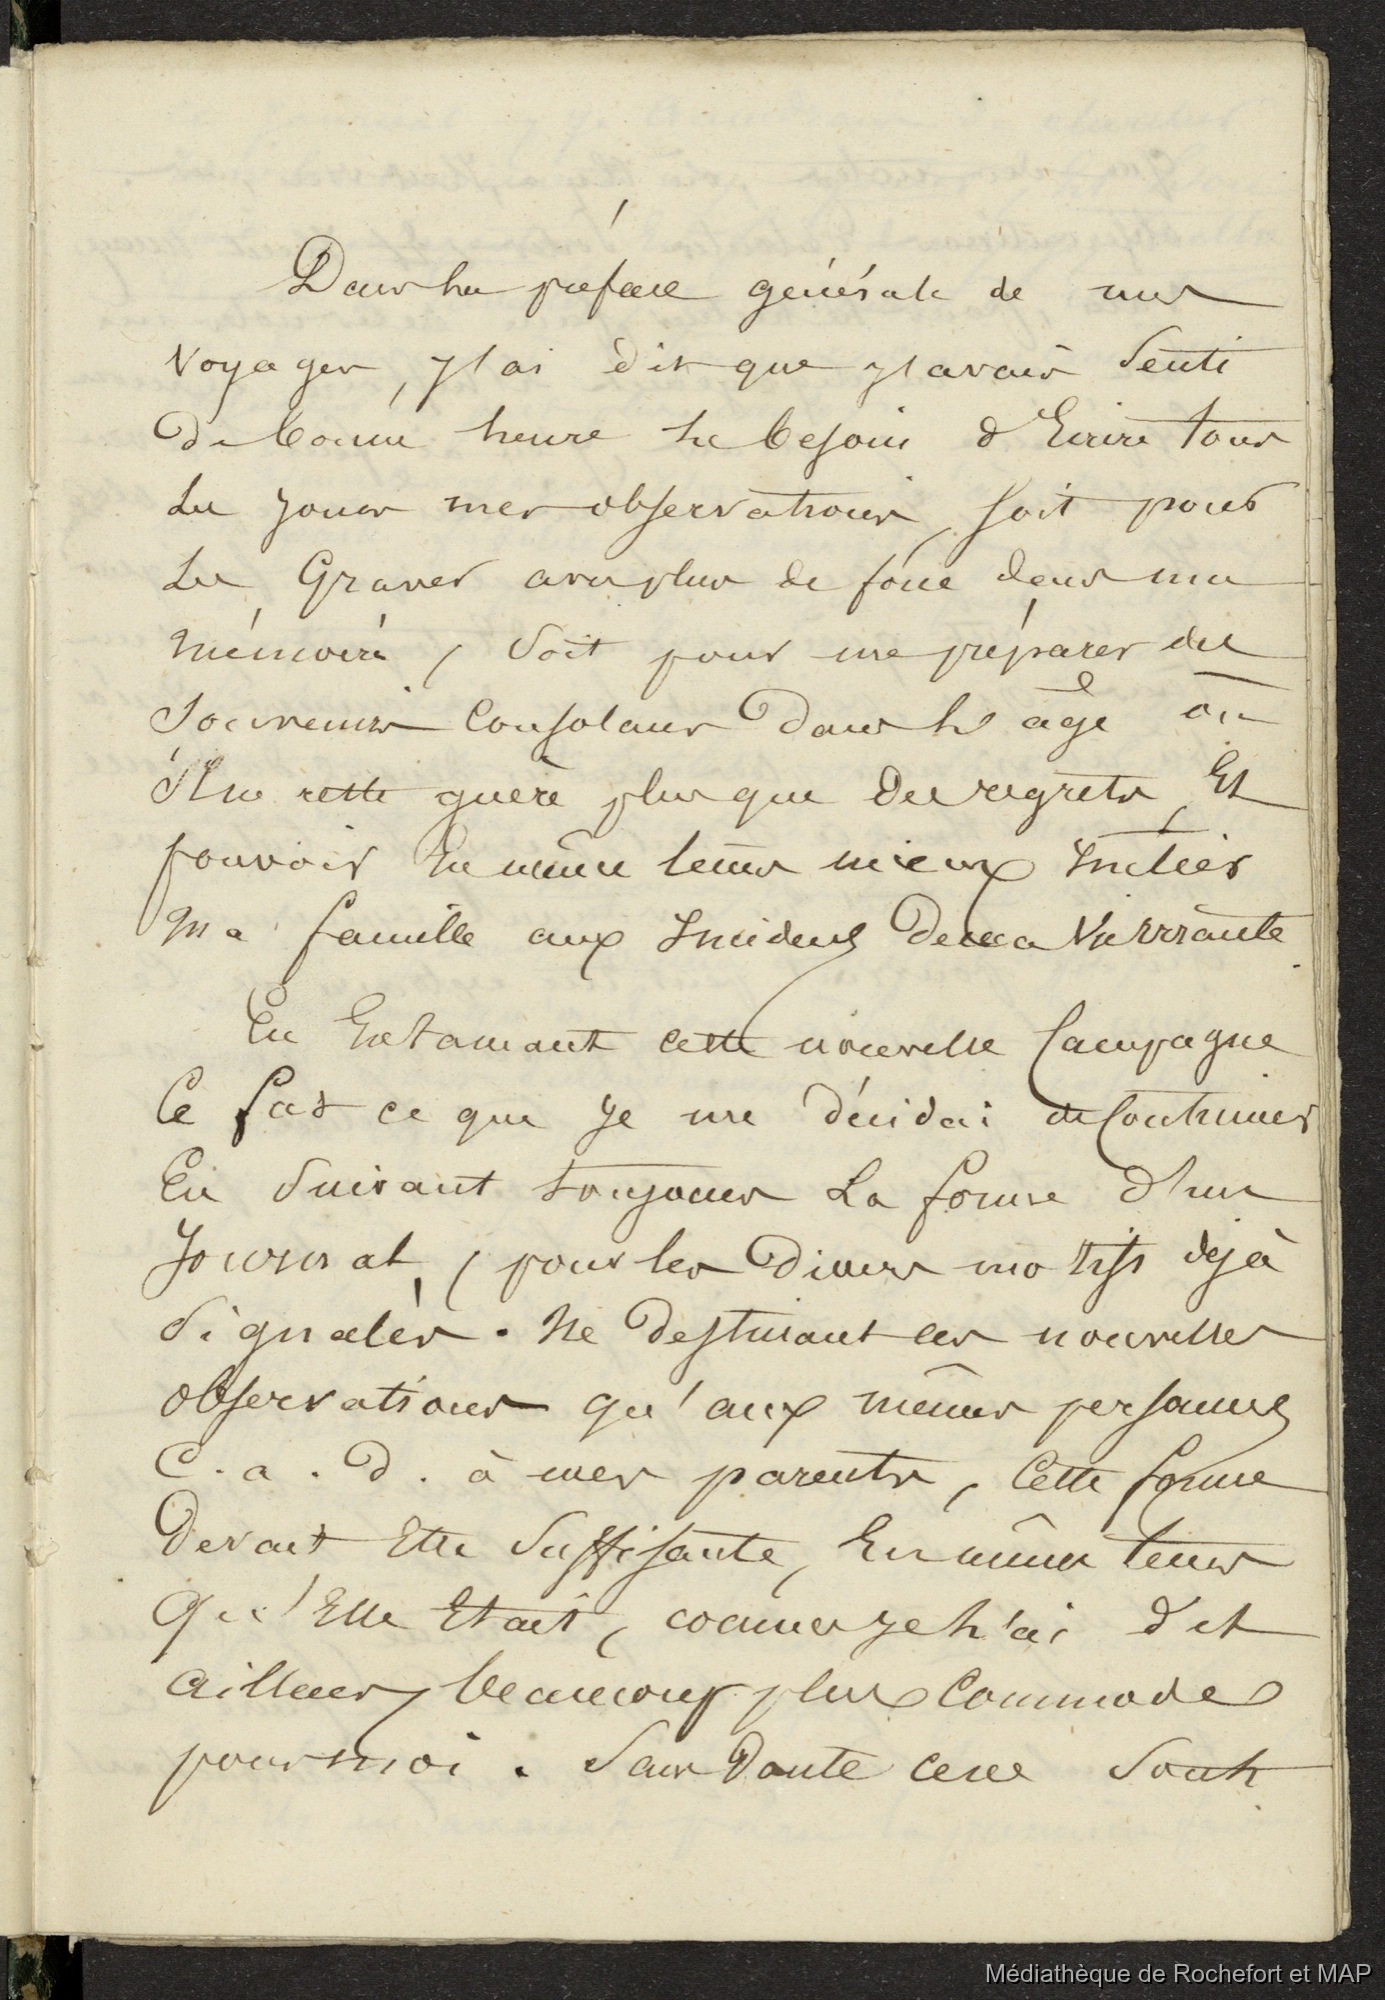 Dans la préface générale de mes
voyages, j'ai dit que j'avais senti
de bonne heure le besoin d'Ecrire tous
les jours mes observations, soit pour
les Graver avec plus de force dans ma
mémoire, soit pour me préparer des
souvenirs consolans dans l'âge où
il ne reste guère plus que des regrets, Et
pouvoir En même tems mieux Initier
ma famille aux Incidens de ma vie errante.
En Entamant cette nouvelle Campagne
Ce fut ce que je me décidai de Continuer
En suivant toujours La forme d'un
Journal, pour les divers motifs déjà
signalés. Ne destinant ces nouvelles
observations qu'aux mêmes personnes
C. a. d. à mes parents, Cette forme
Devait Etre suffisante, En même tems
qu'Elle Etait, comme je l'ai dit
ailleurs, beaucoup plus Commode
pour moi. Sans doute ceux sont
Médiathèque de Rochefort et MAP